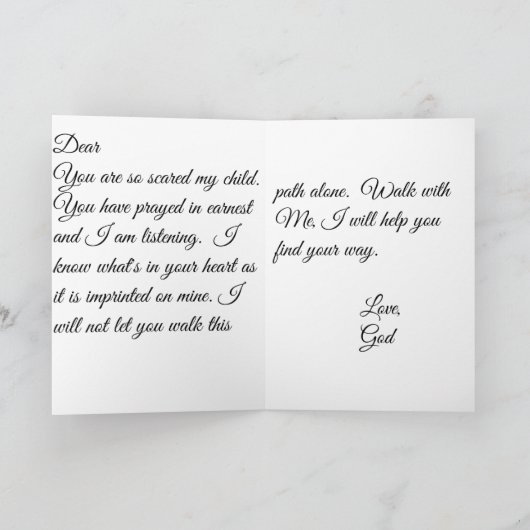 Dear
You are so scared my child.
You have prayed in earnest
and I am listening.  I
know what's in your heart as
it is imprinted on mine. I
will not let you walk this
path alone.  Walk with
Me, I will help you
find your way.
Love,
God